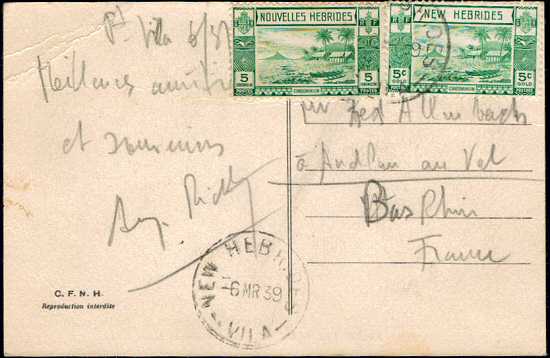 Pt Vila 6/3/39
Meilleures amitiés
et souvenirs
C. F. N. H.
Reproduction interdite
RF
NOUVELLES HEBRIDES
5
5
CONDOMINIUM
POSTES
RF
NEW HEBRIDES
5c
GOLD
5c
GOLD
CONDOMINIUM
à Andlau au Val
Bas Rhin
France
NEW HEBRIDES
-6 MR 39
VILA